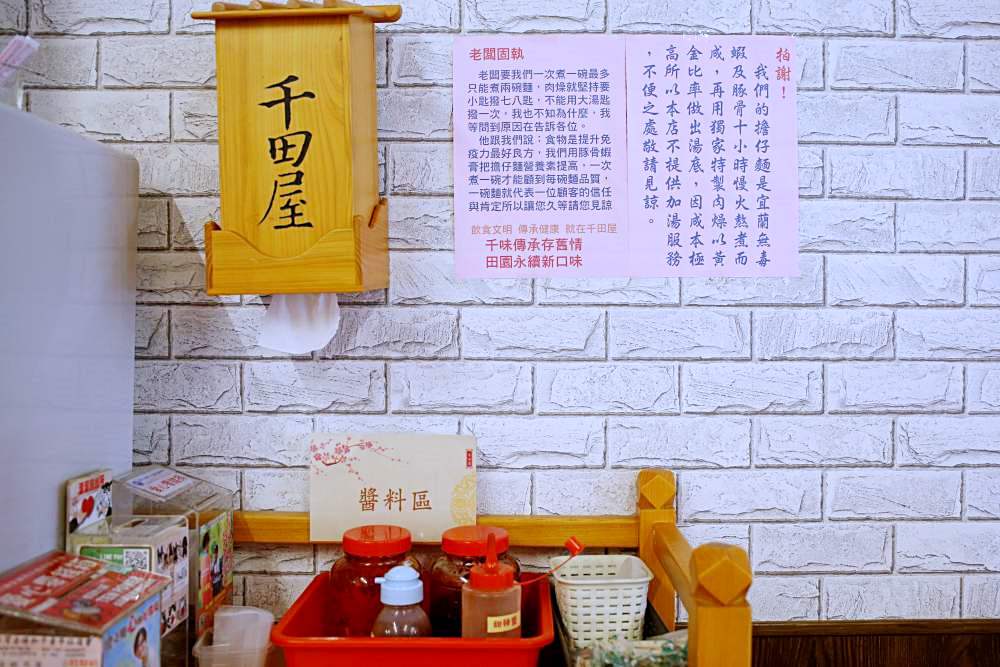 千田屋
老闆固執
老闆要我們一次煮一碗最多
只能煮兩碗麵，肉燥就堅持要
小匙撥七八匙，不能用大湯匙
撥一次，我也不知為什麼，我
等問到原因在告訴各位。
他跟我們說；食物是提升免
疫力最好良方，我們用豚骨蝦
膏把擔仔麵營養素提高，一次
煮一碗才能顧到每碗麵品質，
一碗麵就代表一位顧客的信任
與肯定所以讓您久等請您見諒
飲食文明 傳承健康 就在千田屋
千味傳承存舊情
田園永續新口味
拍謝！
我們的擔仔麵是宜蘭無毒
蝦及豚骨十小時慢火熬煮而
成，再用獨家特製肉燥以黃
金比率做出湯底，因成本極
高所以本店不提供加湯服務
，不便之處敬請見諒。
醬料區